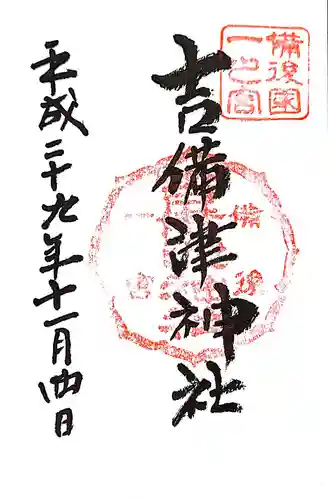 備後国
一之宮
吉備津神社
平成二十九年十一月四日